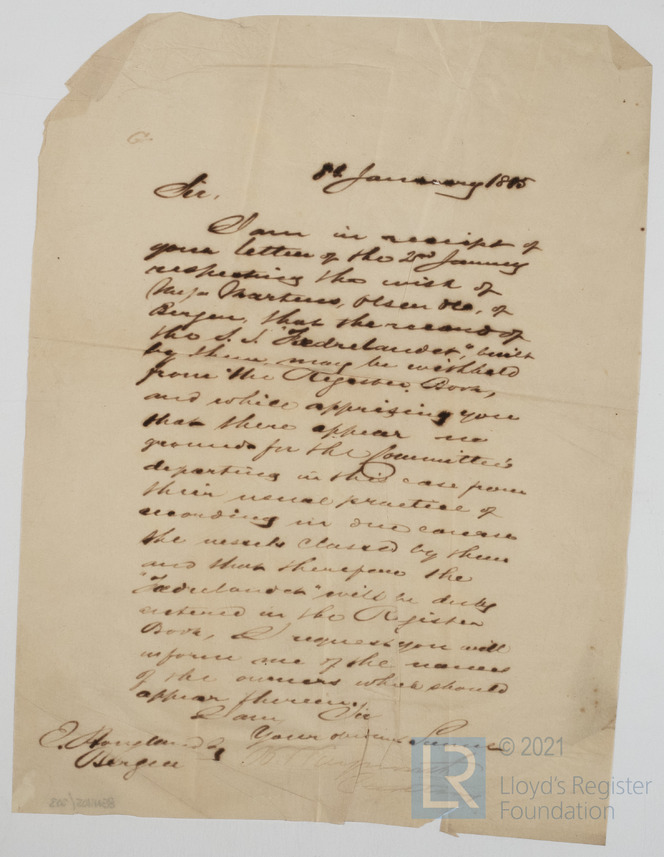 8th January 1885
Sir,
I am in receipt of
your letter of the 2nd January
respecting the wish of
Messrs Martens, Olsen &c, of
Bergen, that the record of
the S.S. "Fædrelandet", built
by them, may be withheld
from the Register Book,
and while apprising you
that there appear no
grounds for the Committee's
departing in this case from
their usual practice of
recording in due course
the vessels classed by them
and that therefore the
"Fædrelandet" will be duly
entered in the Register
Book, I request you will
inform me of the names
of the owners which should
appear therein.
I am Sir
Your obedient Servant
E. Hougland Esq
Bergen
© 2021
LR
Lloyd's Register
Foundation